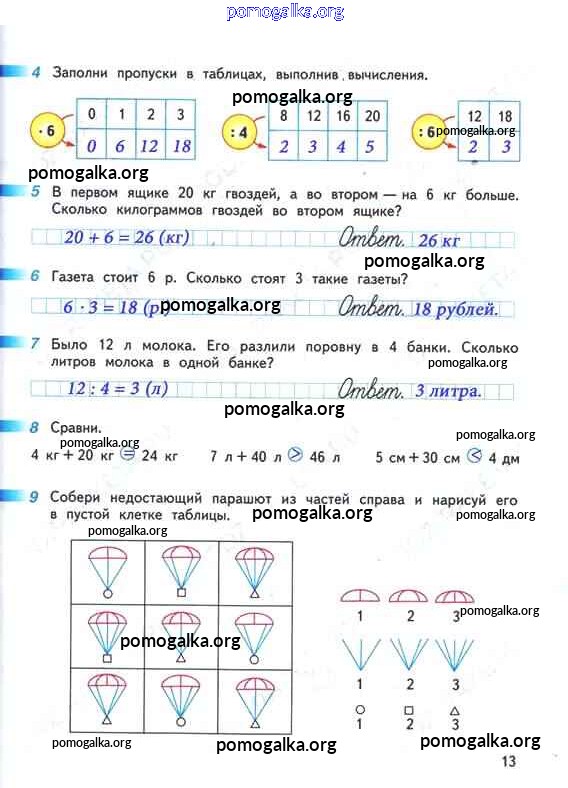 pomogalka.org
4 Заполни пропуски в таблицах, выполнив вычисления.
pomogalka.org
· 6
0 1 2 3
0 6 12 18
: 4
8 12 16 20
2 3 4 5
: 6
12 18
2 3
pomogalka.org
pomogalka.org
5 В первом ящике 20 кг гвоздей, а во втором — на 6 кг больше.
Сколько килограммов гвоздей во втором ящике?
20 + 6 = 26 (кг) Ответ. 26 кг
pomogalka.org
6 Газета стоит 6 р. Сколько стоят 3 такие газеты?
6 · 3 = 18 (р pomogalka.org Ответ. 18 рублей.
7 Было 12 л молока. Его разлили поровну в 4 банки. Сколько
литров молока в одной банке?
12 : 4 = 3 (л) Ответ. 3 литра.
pomogalka.org
8 Сравни.
pomogalka.org pomogalka.org
4 кг + 20 кг = 24 кг 7 л + 40 л > 46 л 5 см + 30 см < 4 дм
9 Собери недостающий парашют из частей справа и нарисуй его
в пустой клетке таблицы.
pomogalka.org pomogalka.org
pomogalka.org
1 2 3
pomogalka.org
pomogalka.org
1 2 3
1 2 3
pomogalka.org pomogalka.org pomogalka.org
13